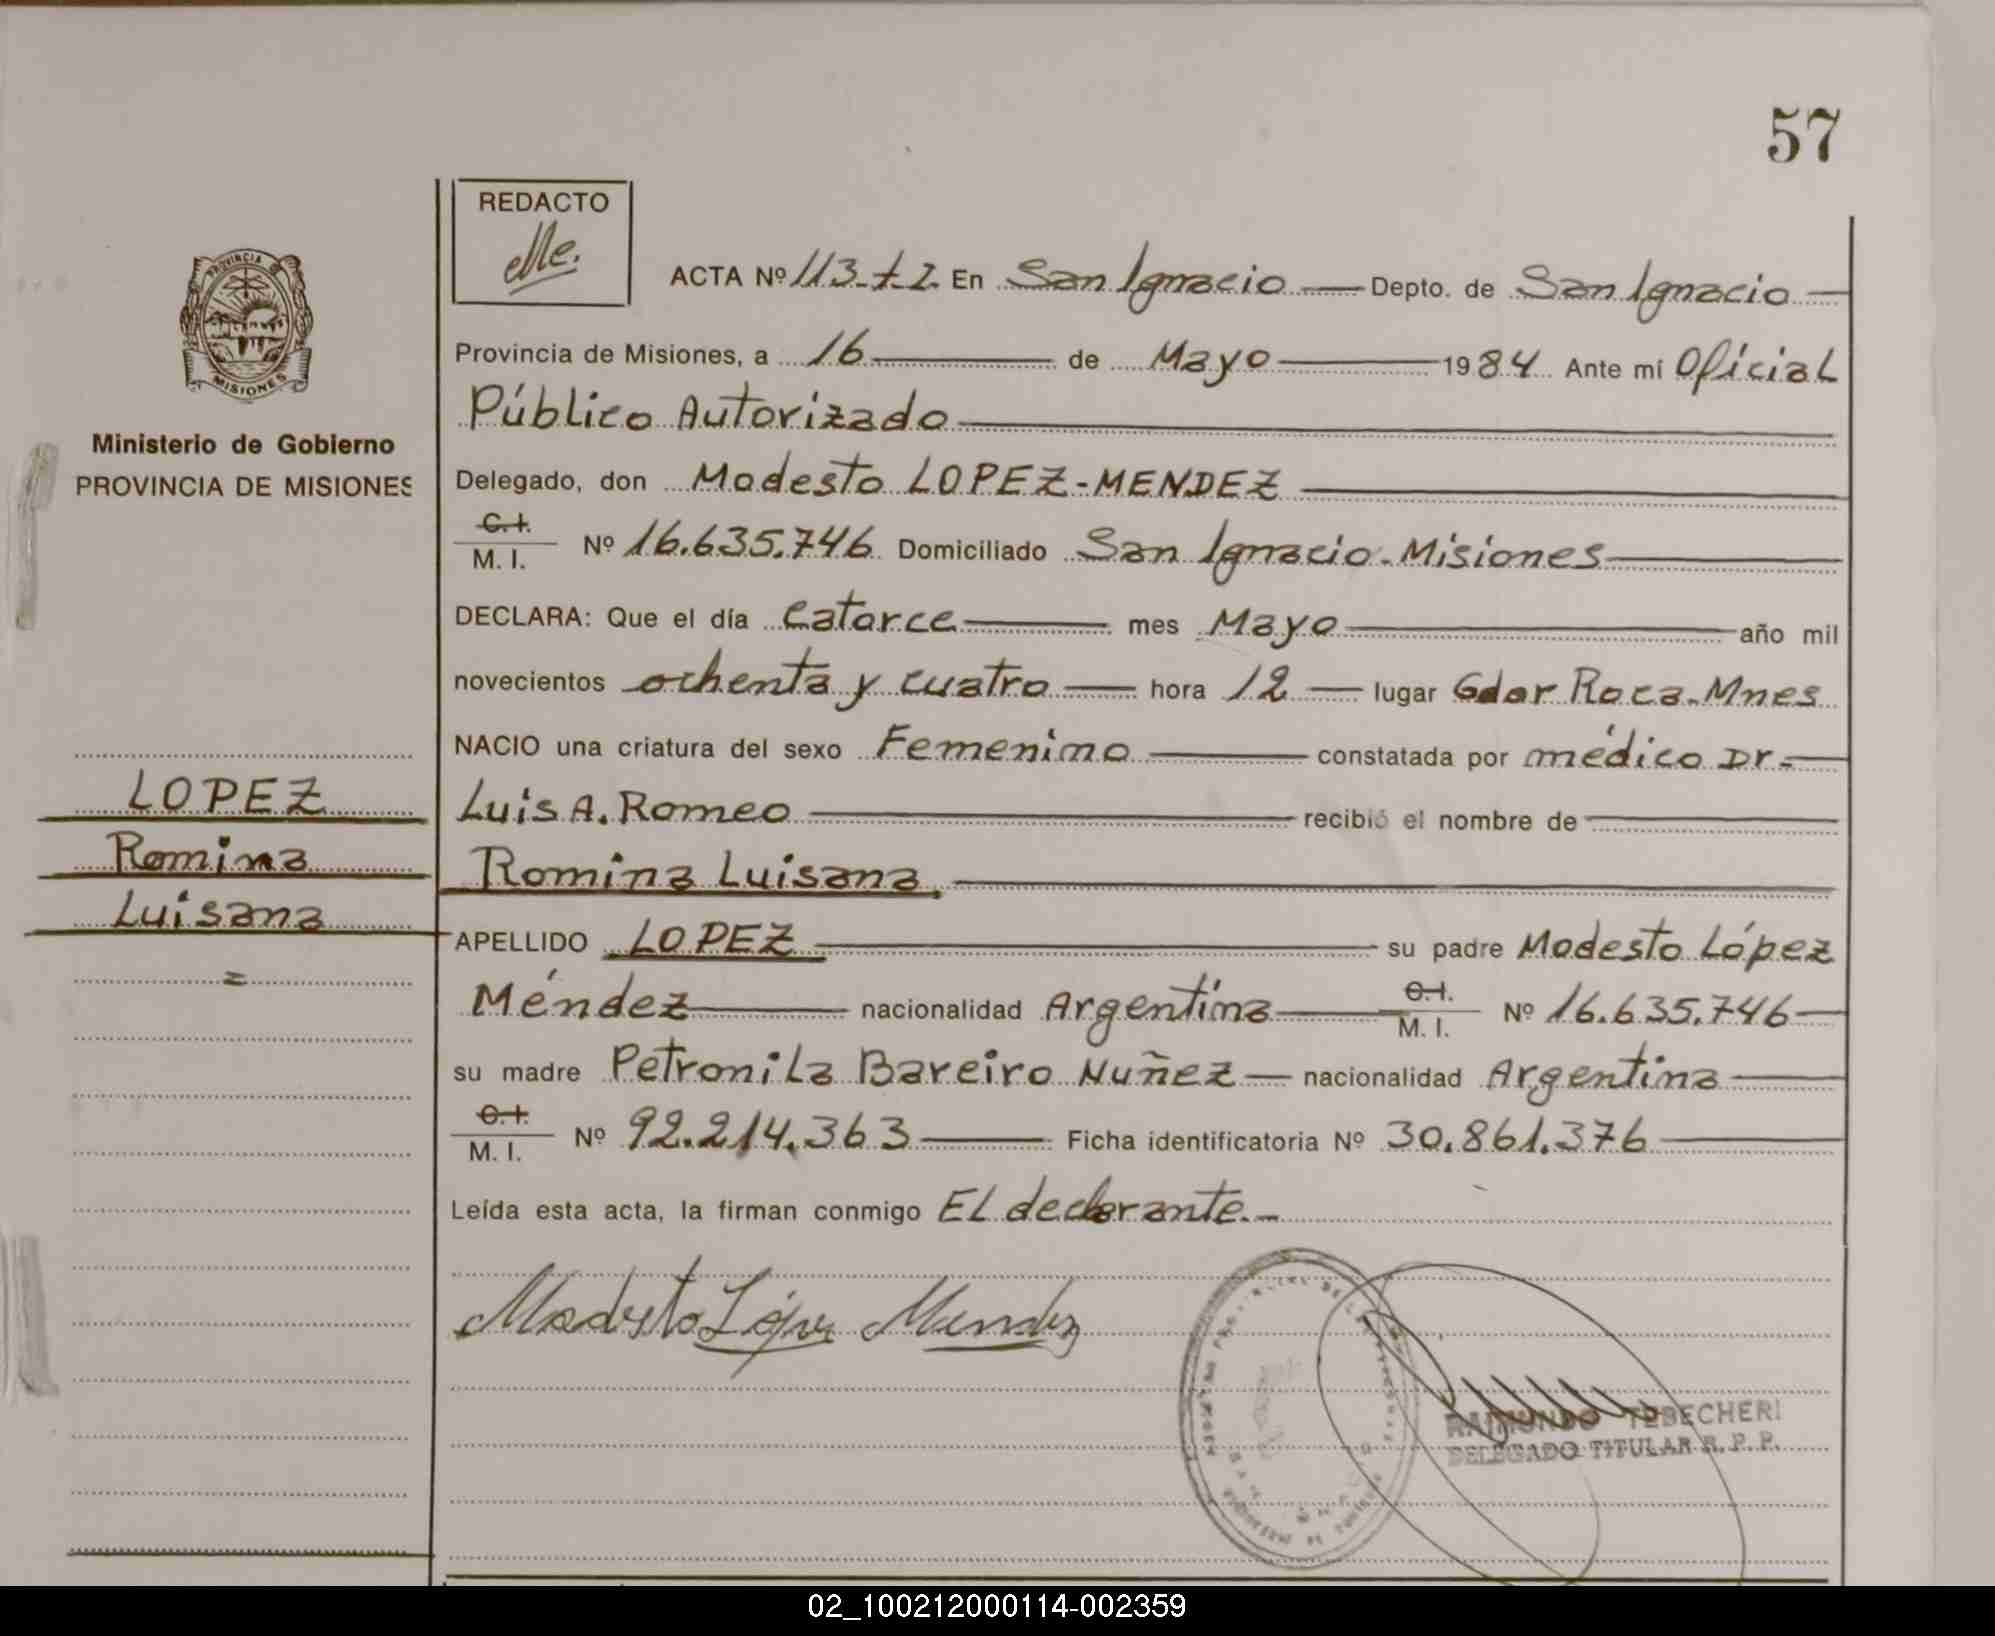 57
REDACTO
Me.
PROVINCIA DE
MISIONES
Ministerio de Gobierno
PROVINCIA DE MISIONES
LOPEZ
Romina
Luisana
=
ACTA Nº 113-t-I. En San Ignacio — Depto. de San Ignacio —
Provincia de Misiones, a 16 — de Mayo — 1984 Ante mí Oficial
Público Autorizado —
Delegado, don Modesto LOPEZ-MENDEZ —
C.I. / M. I. Nº 16.635.746 Domiciliado San Ignacio. Misiones —
DECLARA: Que el día Catorce — mes Mayo — año mil
novecientos ochenta y cuatro — hora 12 — lugar Gdor Roca. Mnes
NACIO una criatura del sexo Femenino — constatada por médico Dr. —
Luis A. Romeo — recibió el nombre de —
Romina Luisana, —
APELLIDO LOPEZ — su padre Modesto López
Méndez — nacionalidad Argentina — C.I. / M. I. Nº 16.635.746 —
su madre Petronila Bareiro Nuñez — nacionalidad Argentina —
C.I. / M. I. Nº 92.214.363 — Ficha identificatoria Nº 30.861.376 —
Leída esta acta, la firman conmigo El declarante. —
Modesto López Mendez
RAIMUNDO TEBECHERI
DELEGADO TITULAR R. P. P.
02_100212000114-002359